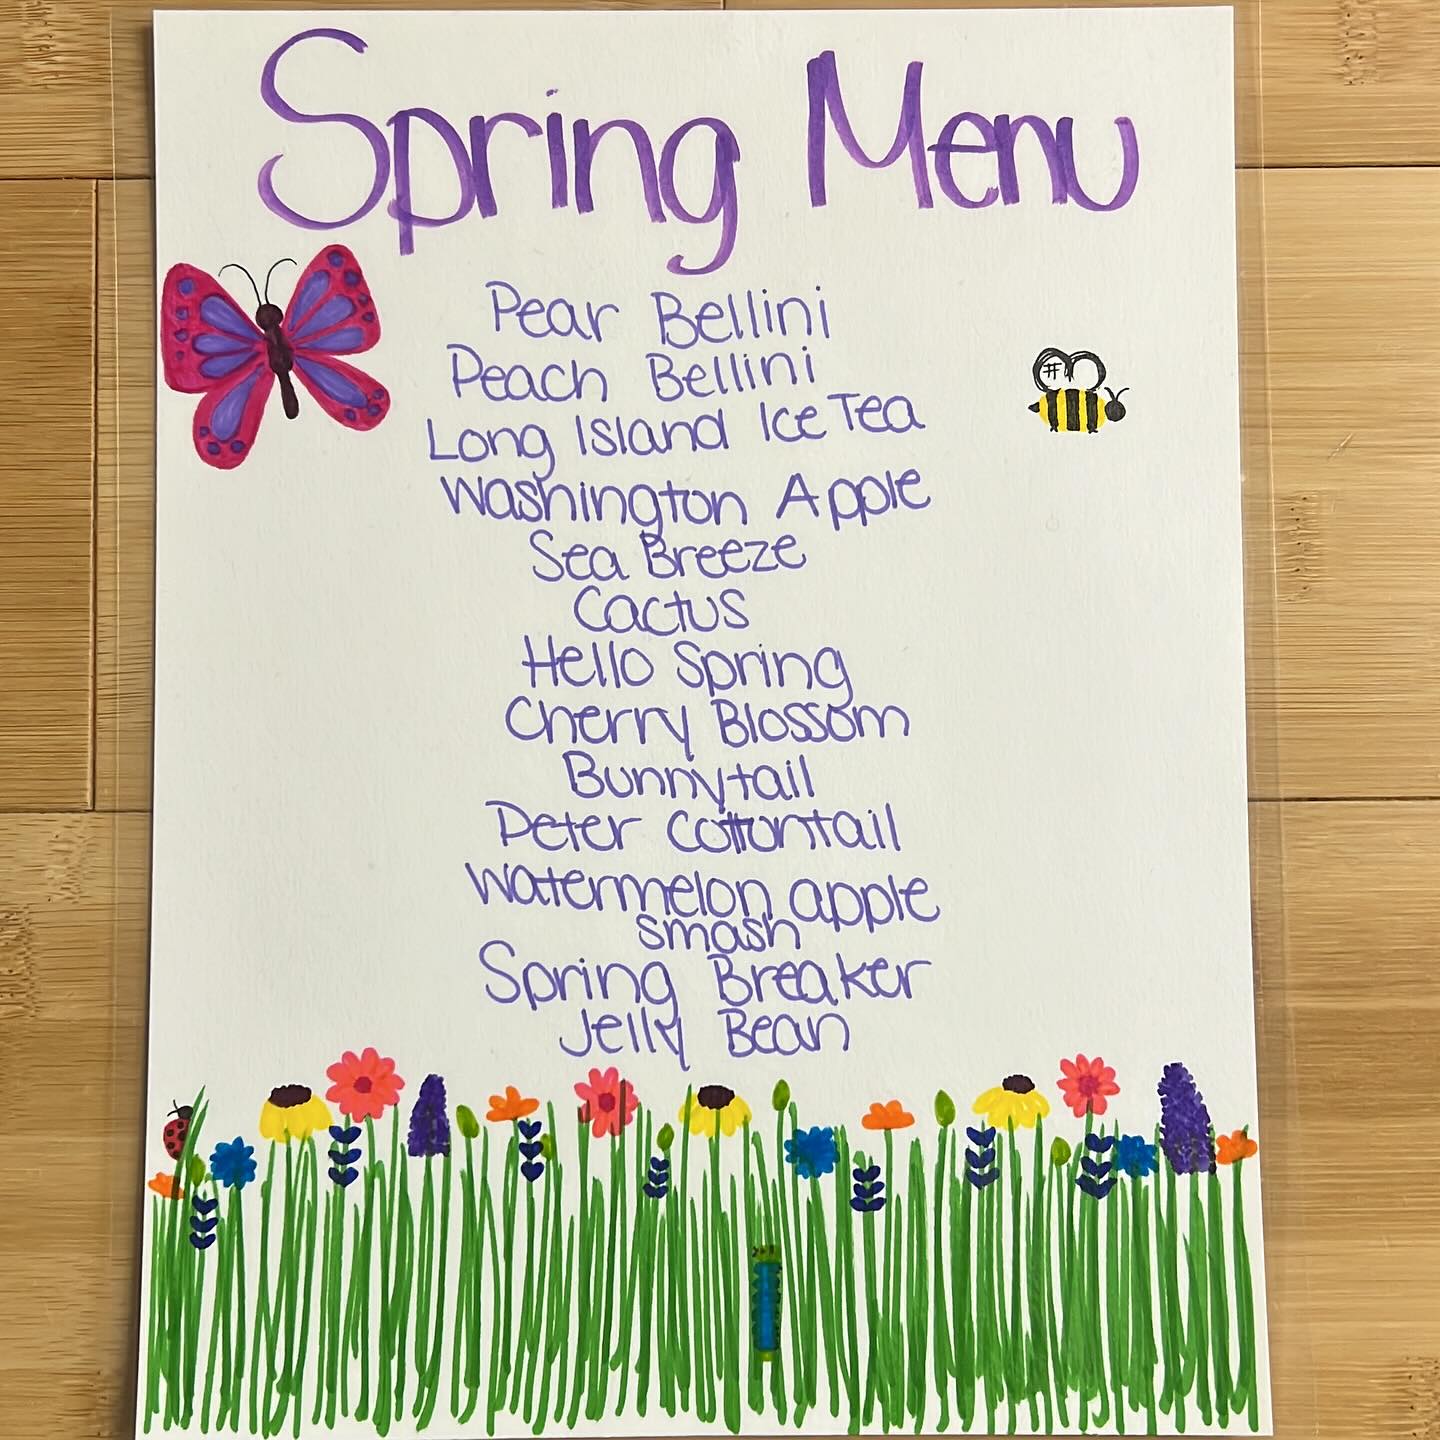 Spring Menu
Pear Bellini
Peach Bellini
#1
Long Island Ice Tea
Washington Apple
Sea Breeze
Cactus
Hello Spring
Cherry Blossom
Bunnytail
Peter Cottontail
Watermelon apple
smash
Spring Breaker
Jelly Bean